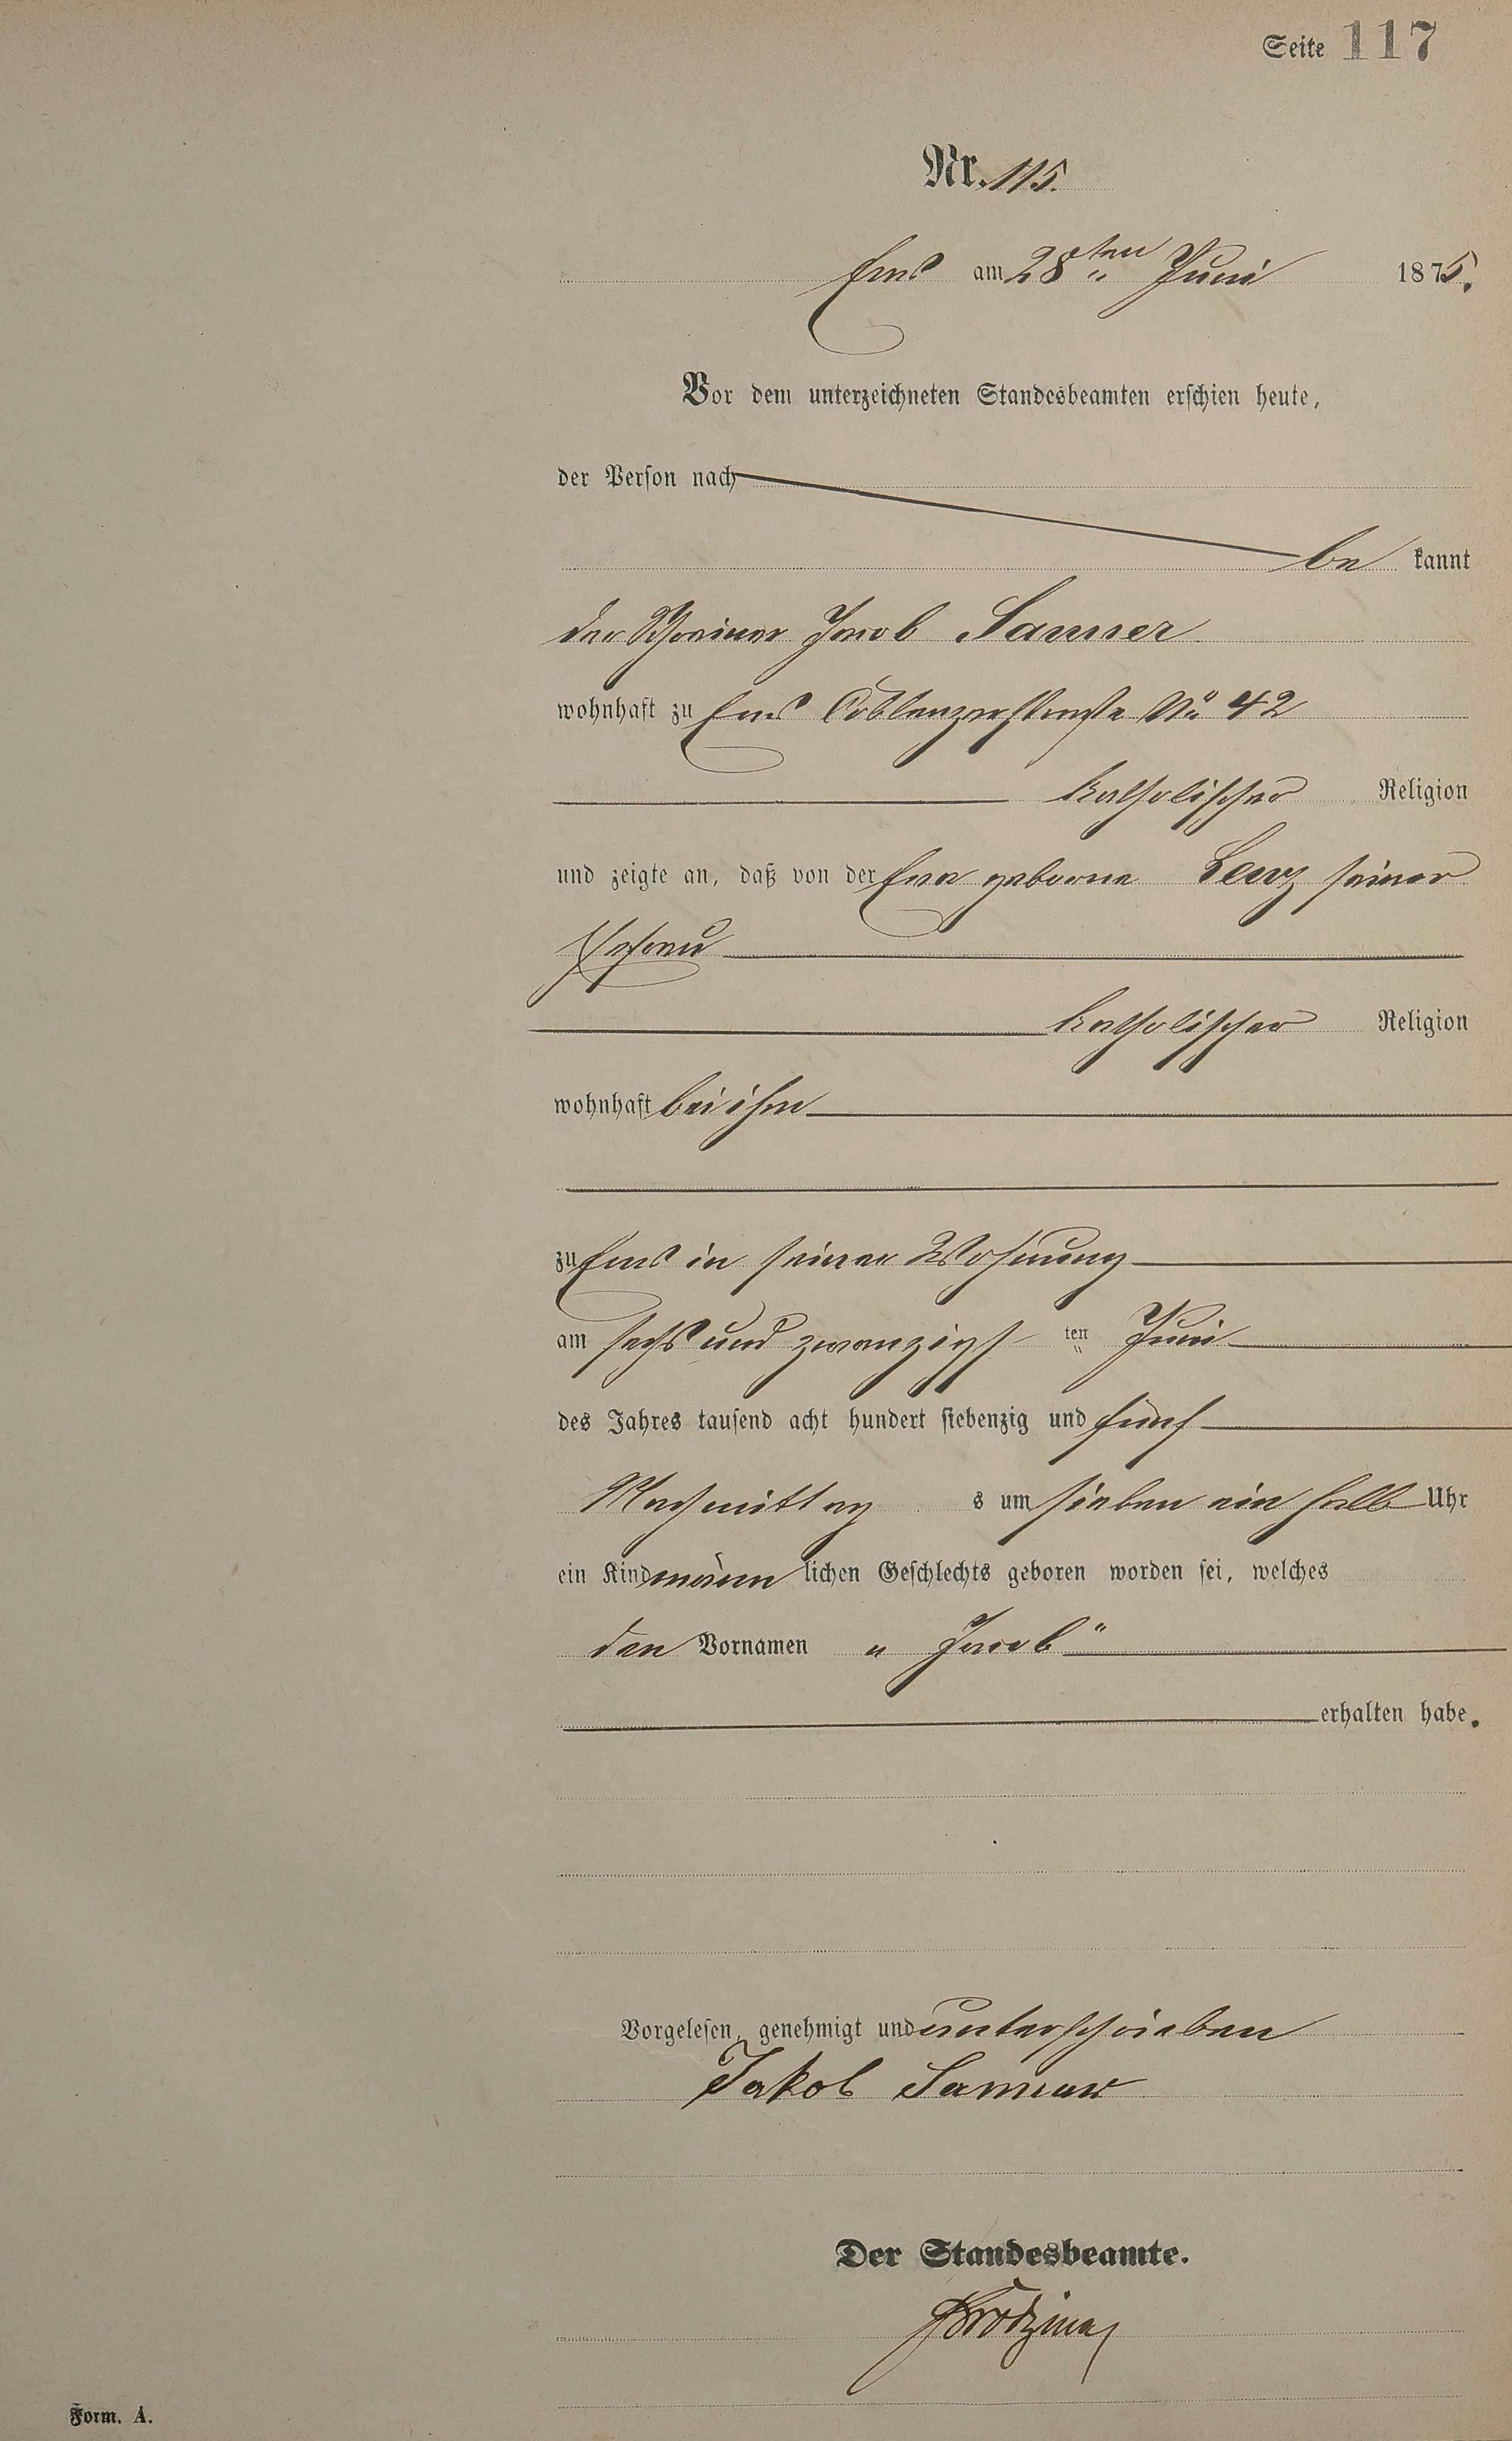 Seite 117
Nr. 115.
Ems am 28ten Juni 1875.
Vor dem unterzeichneten Standesbeamten erschien heute,
der Person nach
be kannt
der Schreiner Jacob Sanner
wohnhaft zu Ems Coblenzerstraße No 42
katholischer Religion
und zeigte an, daß von der Eva geborne seiner
Ehefrau
katholischer Religion
wohnhaft bei ihm
zu Ems in seiner Wohnung
am sechs und zwanzigsten Juni
des Jahres tausend acht hundert siebenzig und fünf
Nachmittags um sieben ein halb Uhr
ein Kind männlichen Geschlechts geboren worden sei, welches
den Vornamen „Jacob"
erhalten habe.
Vorgelesen, genehmigt und unterschrieben
Jakob Sanner
Der Standesbeamte.
Form. A.